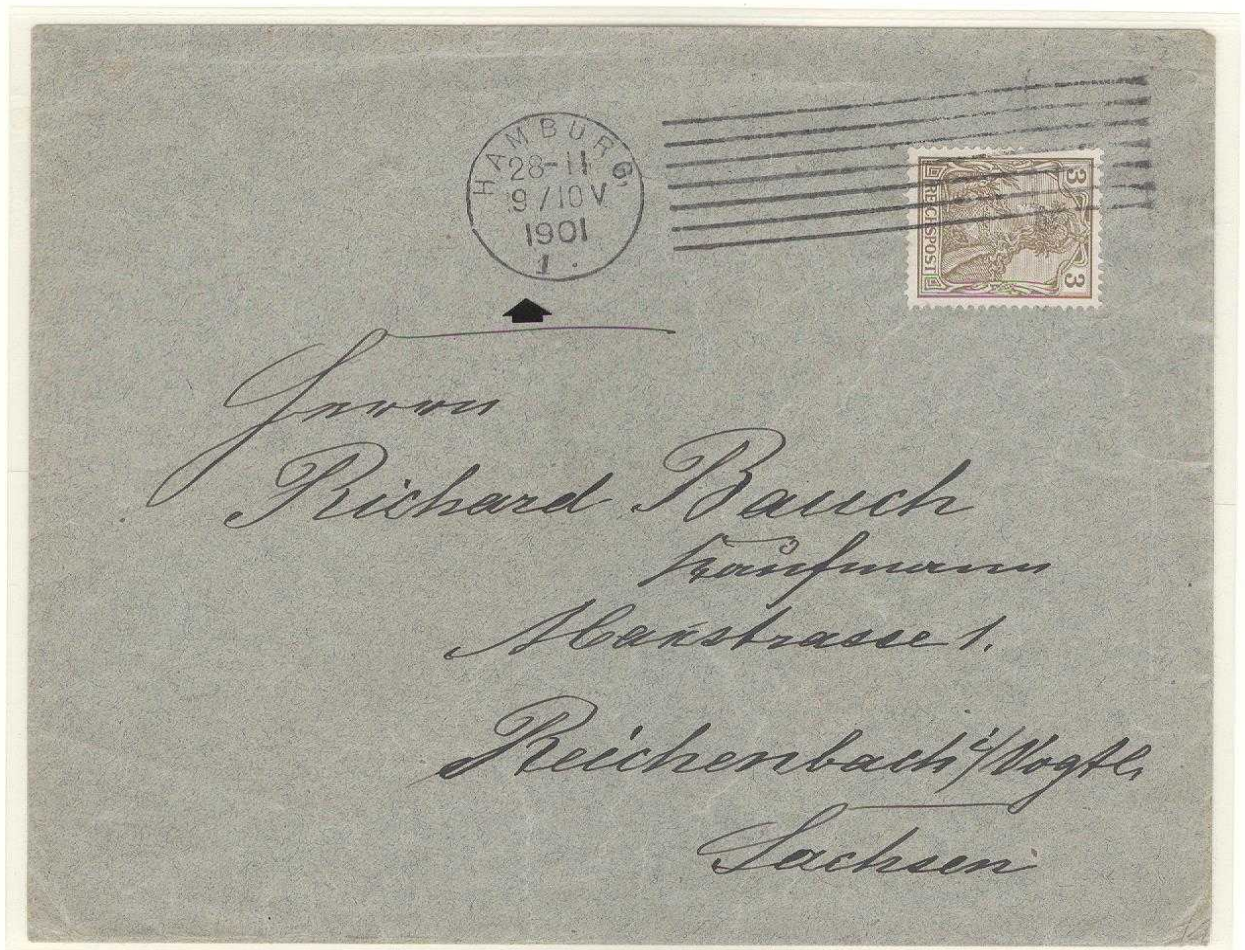 HAMBURG,
28-11
9/10V
1901
1.
3 REICHSPOST 3
Herrn
Richard Bauch
Kaufmann
Maxstrasse 1.
Reichenbach i/Vogtl.
Sachsen